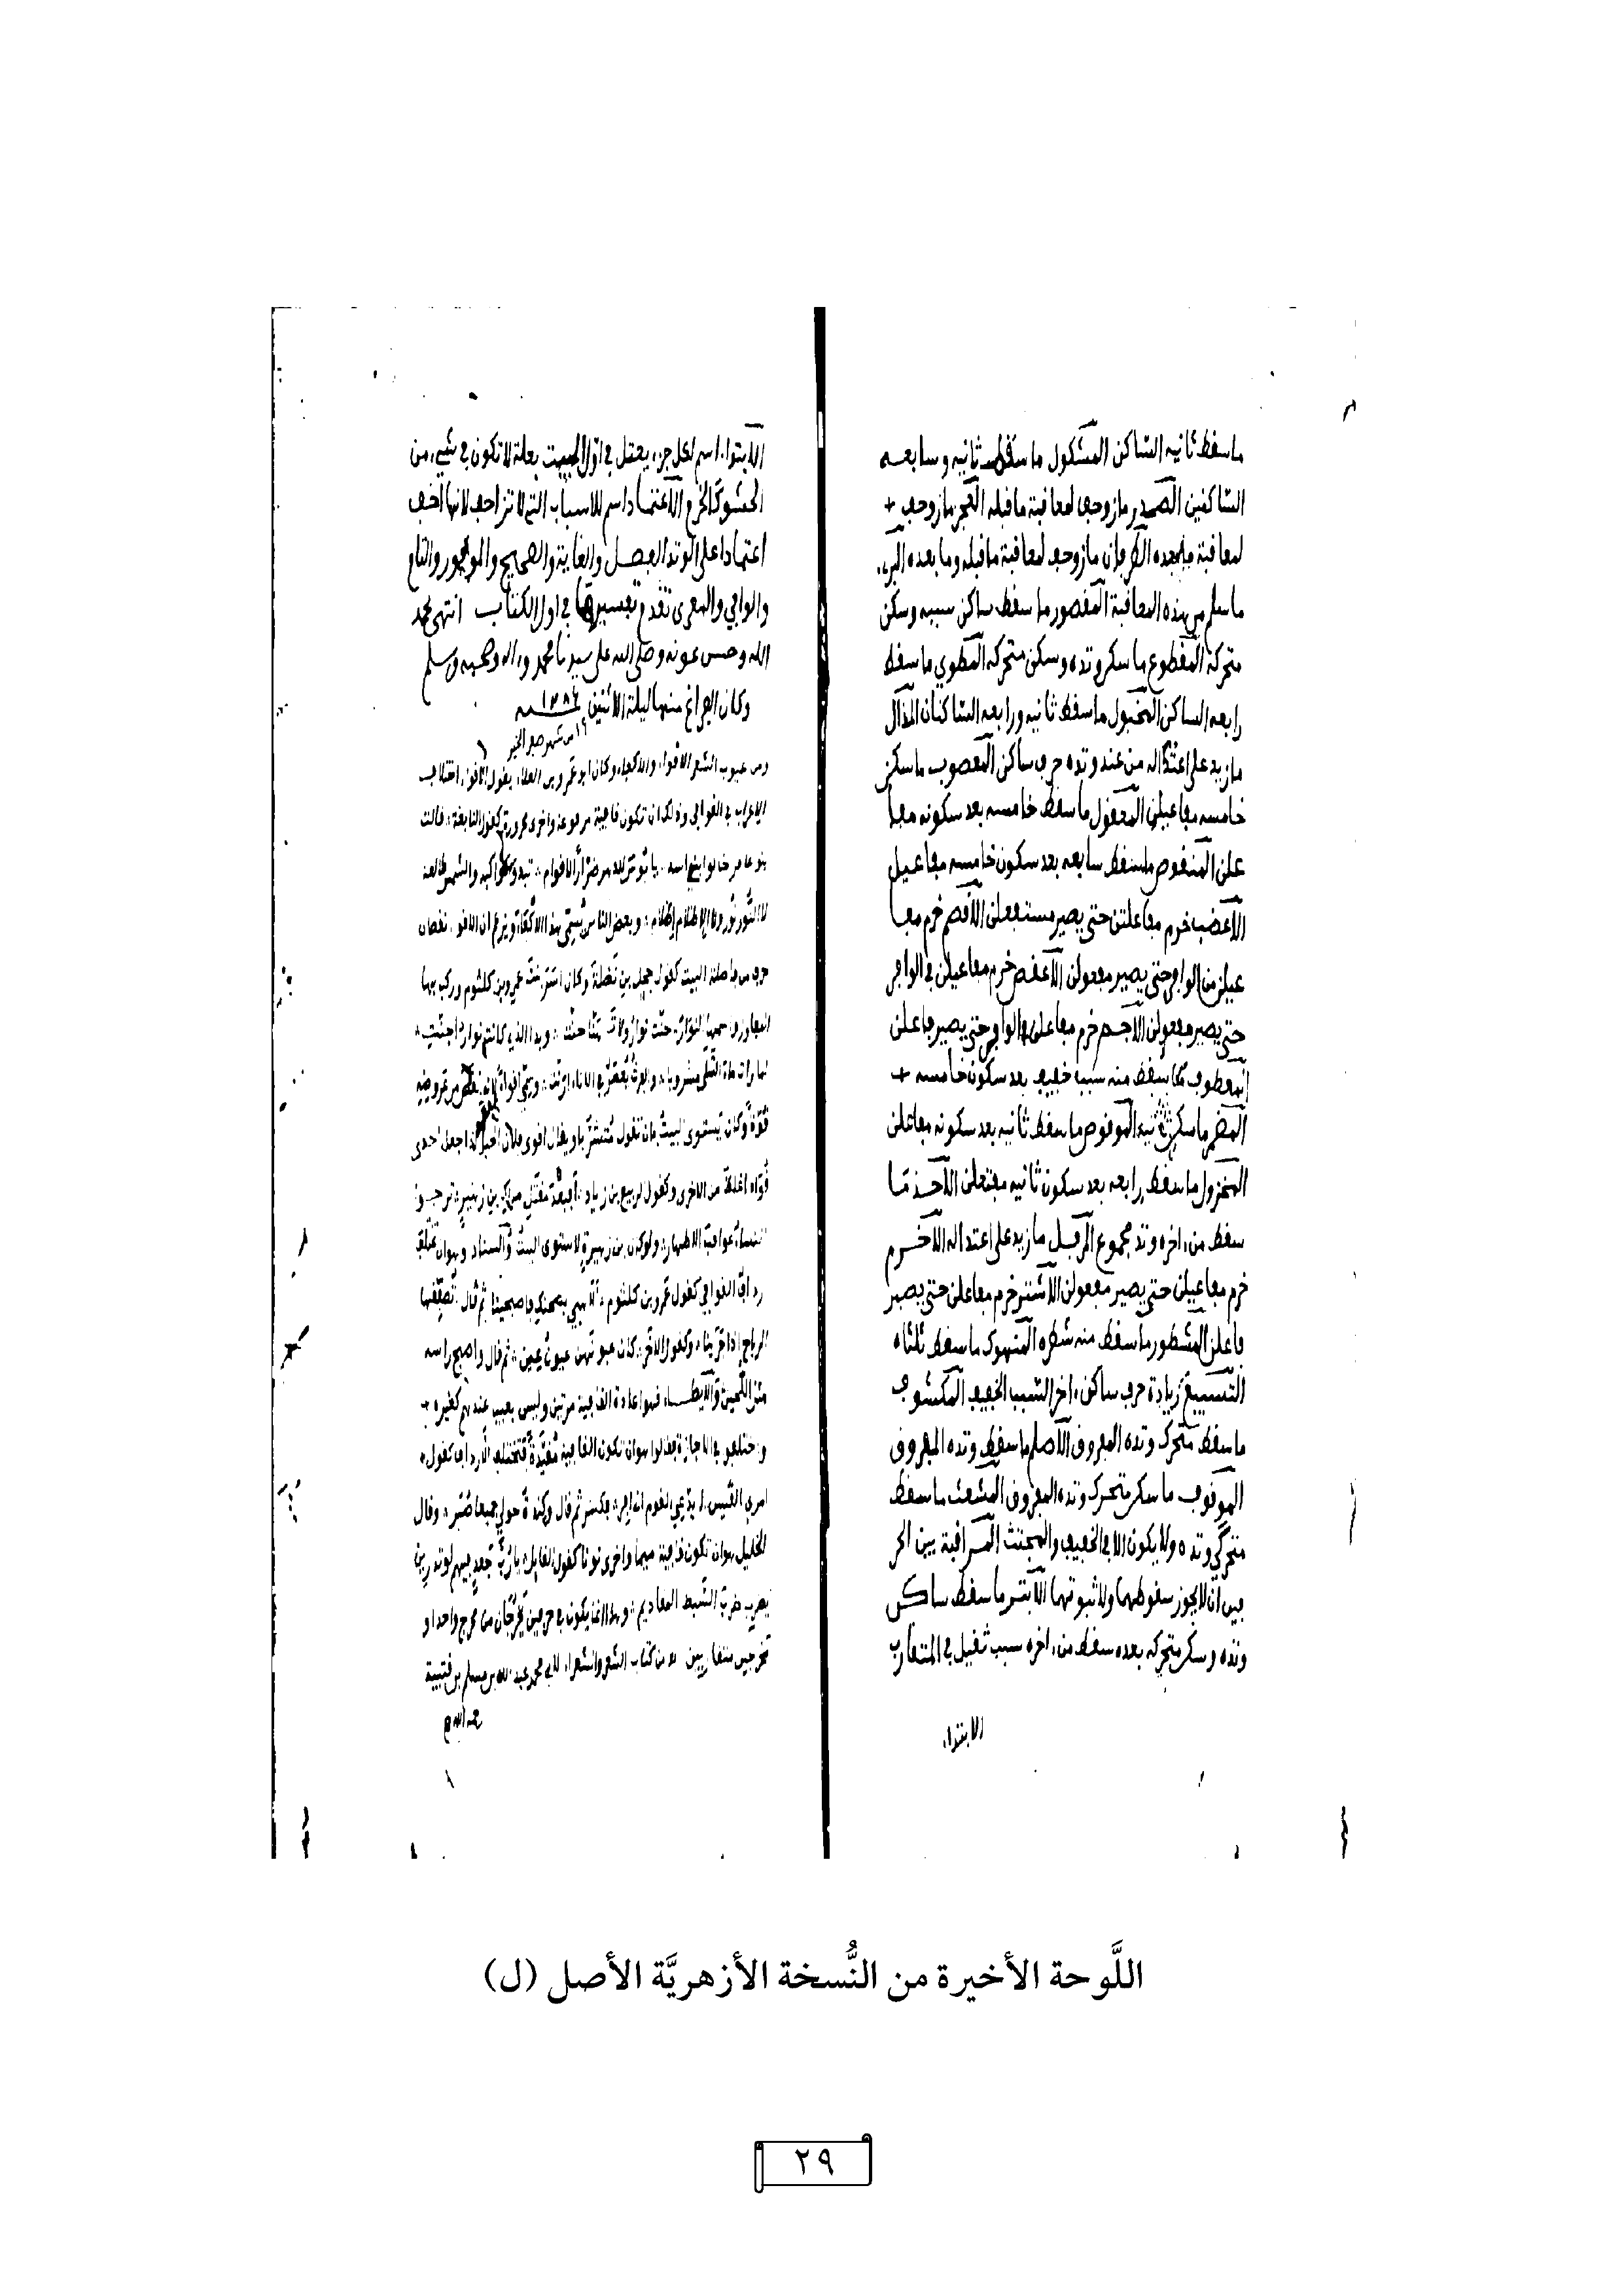 ما سقط ثانيه الساكن المشكول ما سقط ثانيه وسابعه
الساكنين الصدر ما زوحف لمعاقبة ما قبله العجز ما زوحف
لمعاقبة ما بعده الطرفان ما زوحف لمعاقبة ما قبله وما بعده البرىء
ما سلم من هذه المعاقبة المقصور ما سقط ساكن سببه وسكن
متحركه المقطوع ما سكن وتده وسكن متحركه المطوي ما سقط
رابعه الساكن المخبول ما سقط ثانيه ورابعه الساكنان المذال
ما زيد على اعتداله من عند وتده حرف ساكن المعصوب ما سكن
خامسه مفاعيلن المعقول ما سقط خامسه بعد سكونه مفا
علن المنقوص ما سقط سابعه بعد سكون خامسه مفاعيل
الأعضب خرم مفاعلتن حتى يصير مستفعلن الأقصم خرم مفا
عيلن من الوافر حتى يصير مفعولن الأعقص خرم مفاعيلن في الوافر
حتى يصير مفعولن الأجم خرم مفاعلن في الوافر حتى يصير فاعلن
المقطوف ما سقط منه سبب خفيف بعد سكون خامسه
المضمر ما سكن ثانيه الموقوص ما سقط ثانيه بعد سكونه مفاعلن
المخزول ما سقط رابعه بعد سكون ثانيه مفتعلن الأحذ ما
سقط من اخره وتد مجموع المرفل ما زيد على اعتداله الأخرم
خرم مفاعيلن حتى يصير مفعولن الأشتر خرم مفاعلن حتى يصير
فاعلن المشطور ما سقط منه شطره المنهوك ما سقط ثلثاه
التسبيغ زيادة حرف ساكن اخر السبب الخفيف المكشوف
ما سقط متحرك وتده المفروق الأصلم ما سقط وتده المفروق
الموقوف ما سكن متحرك وتده المفروق المشعث ما سقط
متحركي وتده ولا يكون الا في الخفيف والمجتث المراقبة بين الحر
فين ان لا يجوز سقوطهما ولا ثبوتهما الأبتر ما سقط ساكن
وتده وسكن متحركه بعده سقط من اخره سبب ثقيل في المتقارب
الابتداء
الابتداء اسم لكل جزء يعتل في اول البيت بعلة لا تكون في شيء من
الحشو كالخرم الاعتماد اسم للاسباب التي لا تزاحف لانها اخف
اعتمادا على الوتد الفصل والغاية والصحيح والموفور والتام
والوافي والمعرى تقدم تفسيرها في اول الكتاب انتهى بحمد
الله وحسن عونه وصلى الله على سيدنا محمد واله وصحبه وسلم
وكان الفراغ منها ليلة الاثنين
من شهر صفر الخير
ومن عيوب الشعر الاقواء والاكفاء وكان ابو عمرو بن العلاء يقول الاقواء اختلاف
الاعراب في القوافي وذلك ان تكون قافية مرفوعة واخرى مجرورة كقول النابغة قالت
بنو عامر خالوا بني اسد يا بؤس للجهل ضرارا لاقوام تبدو كواكبه والشمس طالعة
لا النور نور ولا الاظلام اظلام وبعض الناس يسمي هذا الاكفاء ويزعم ان الاقواء نقصان
حرف من فاصلة البيت كقول حجل بن نضلة وكان اسر بنت عمرو بن كلثوم وركب بها
المفاوز واسمها النوار حنت نوار ولات هنا حنت وبدا الذي كانت نوار اجنت
لما رات ماء السلى مشروبا والفرث يعصر في الاناء ارنت وسمي اقواء لانه نقص من عروضه
قوة وكان يستوي البيت بان تقول متشربا ويقال اقوى فلان الحبل اذا جعل احدى
قواه اغلظ من الاخرى وكقول الربيع بن زياد افبعد مقتل مالك بن زهير ترجو
النساء عواقب الاطهار ولو كان بن زهيرة لاستوى البيت والسناد وهو ان تختلف
ارداف القوافي كقول عمرو بن كلثوم الا هبي بصحنك فاصبحينا ثم قال تصفقها
الرياح اذا جرينا وكقول الاخر كان عيونهن عيون عين ثم قال واصبح راسه
مثل اللجين والايطاء فهو اعادة القافية مرتين وليس بعيب عندهم كغيره
واختلفو في الاجازة فقالوا هو ان تكون القافية مقيدة فتختلف الارداف كقول
امرى القيس لا يدعي القوم اني افر فكسر ثم قال وكندة حولي جميعا صبر وقال
الخليل هو ان تكون قافية ميما واخرى نونا كقول القايل يا رب جعد فيهم لو تدرين
يضرب ضرب السبط المقاديم وهذا انما يكون في حرفين يخرجان من مخرج واحد او
مخرجين متقاربين من كتاب الشعر والشعراء لابي محمد عبد الله بن مسلم بن قتيبة
رحمه الله
اللَّوحة الأخيرة من النُّسخة الأزهريَّة الأصل (ل)
٢٩